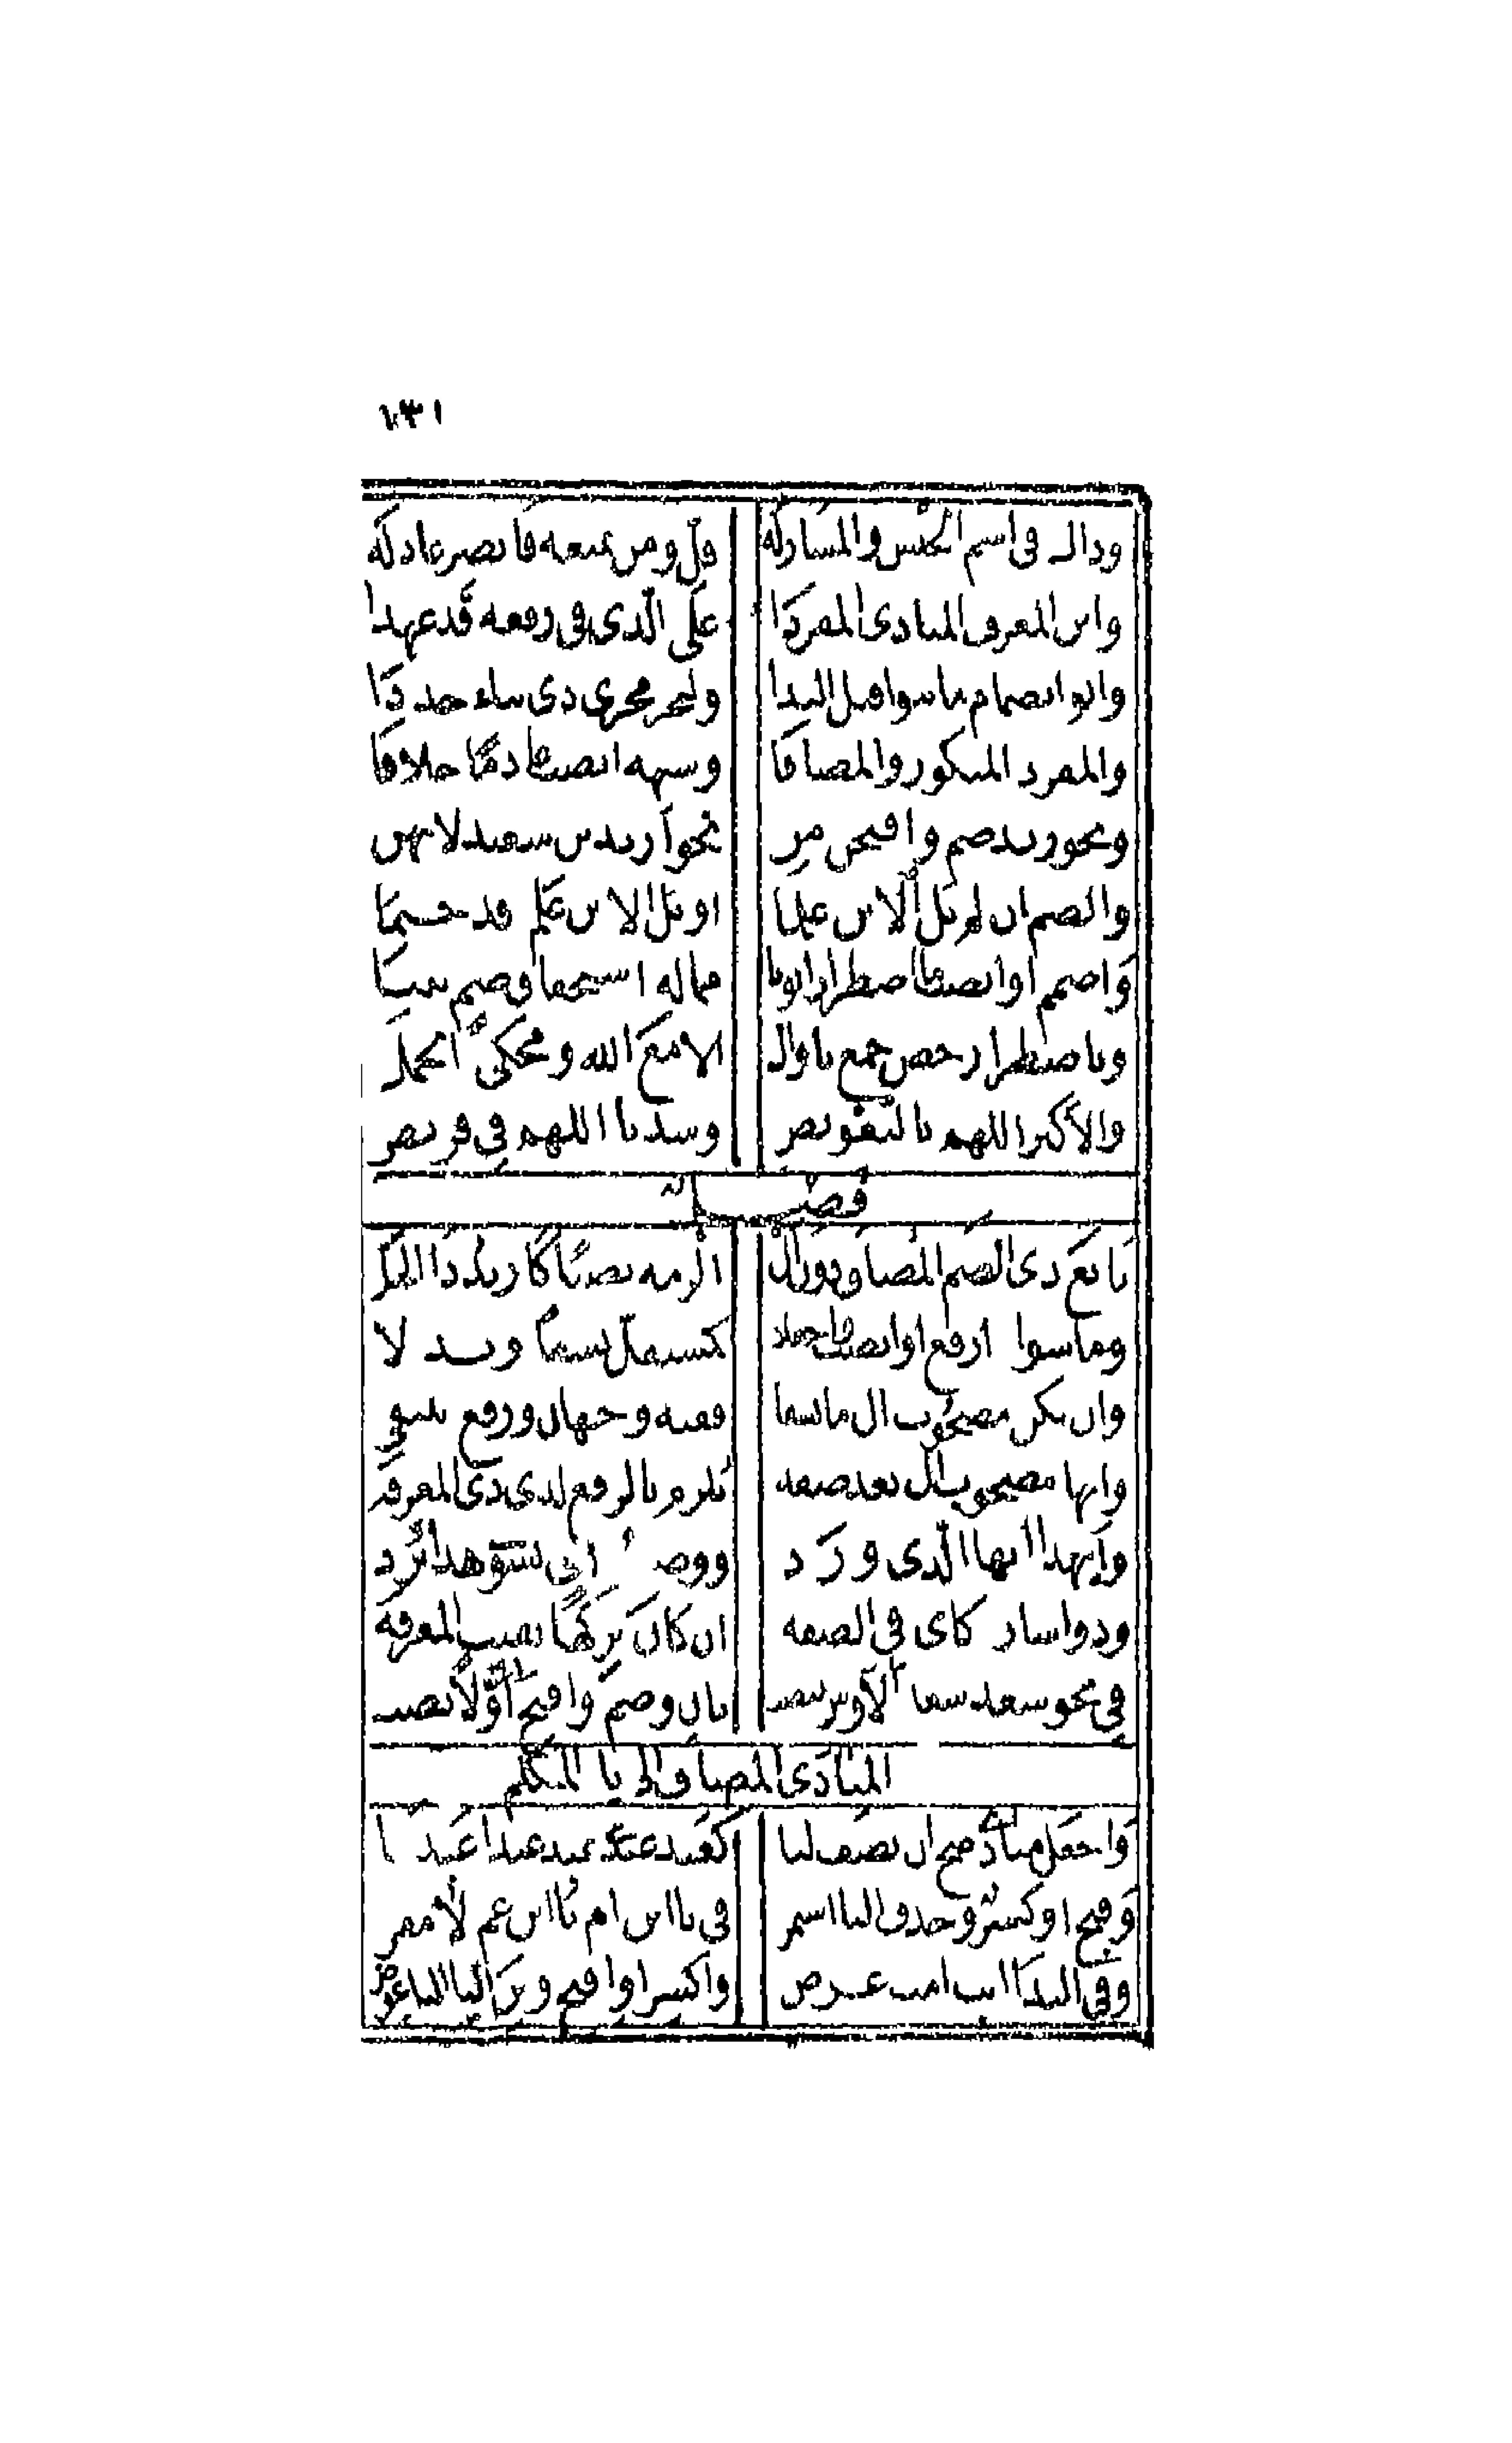 ١٣١
وذاك في اسم الجنس والمشار له قل ومن يمنعه فانصر عاذله
وابن المعرف المنادى المفردا على الذي في رفعه قد عهدا
وانو انضمام ما بنوا قبل الندا وليجر مجرى ذي بناء جددا
والمفرد المنكور والمضافا وشبهه انصب عادما خلافا
ونحو زيد ضم وافتحن من نحو ازيد بن سعيد لا تهن
والضم ان لم يل الابن علما او يل الابن علم قد حتما
واضمم او انصب ما اضطرارا نونا مما له استحقاق ضم بينا
وباضطرار خص جمع يا وال الا مع الله ومحكي الجمل
والاكثر اللهم بالتعويض وشذ يا اللهم في قريض
فصل
تابع ذي الضم المضاف دون ال الزمه نصبا كازيد ذا الحيل
وما سوا ارفع او انصب واجعلا كمستقل نسقا وبدلا
وان يكن مصحوب ال ما نسقا ففيه وجهان ورفع ينتقى
وايها مصحوب ال بعد صفه تلزم بالرفع لدى ذي المعرفه
وايهذا ايها الذي ورد ووصف اي بسوى هذا يرد
وذو اشار كاي في الصفه ان كان تركها يفيت المعرفه
في نحو سعد سعد الاوس ينتصب ثان وضم وافتح اولا تصب
المنادى المضاف الى يا المتكلم
واجعل مناد صح ان يضف ليا كعبد عبدي عبد عبدا عبديا
وفتح او كسر وحذف اليا استمر في يا ابن ام يا ابن عم لا مفر
وفي الندا ابت امت عرض واكسر او افتح ومن اليا التا عوض